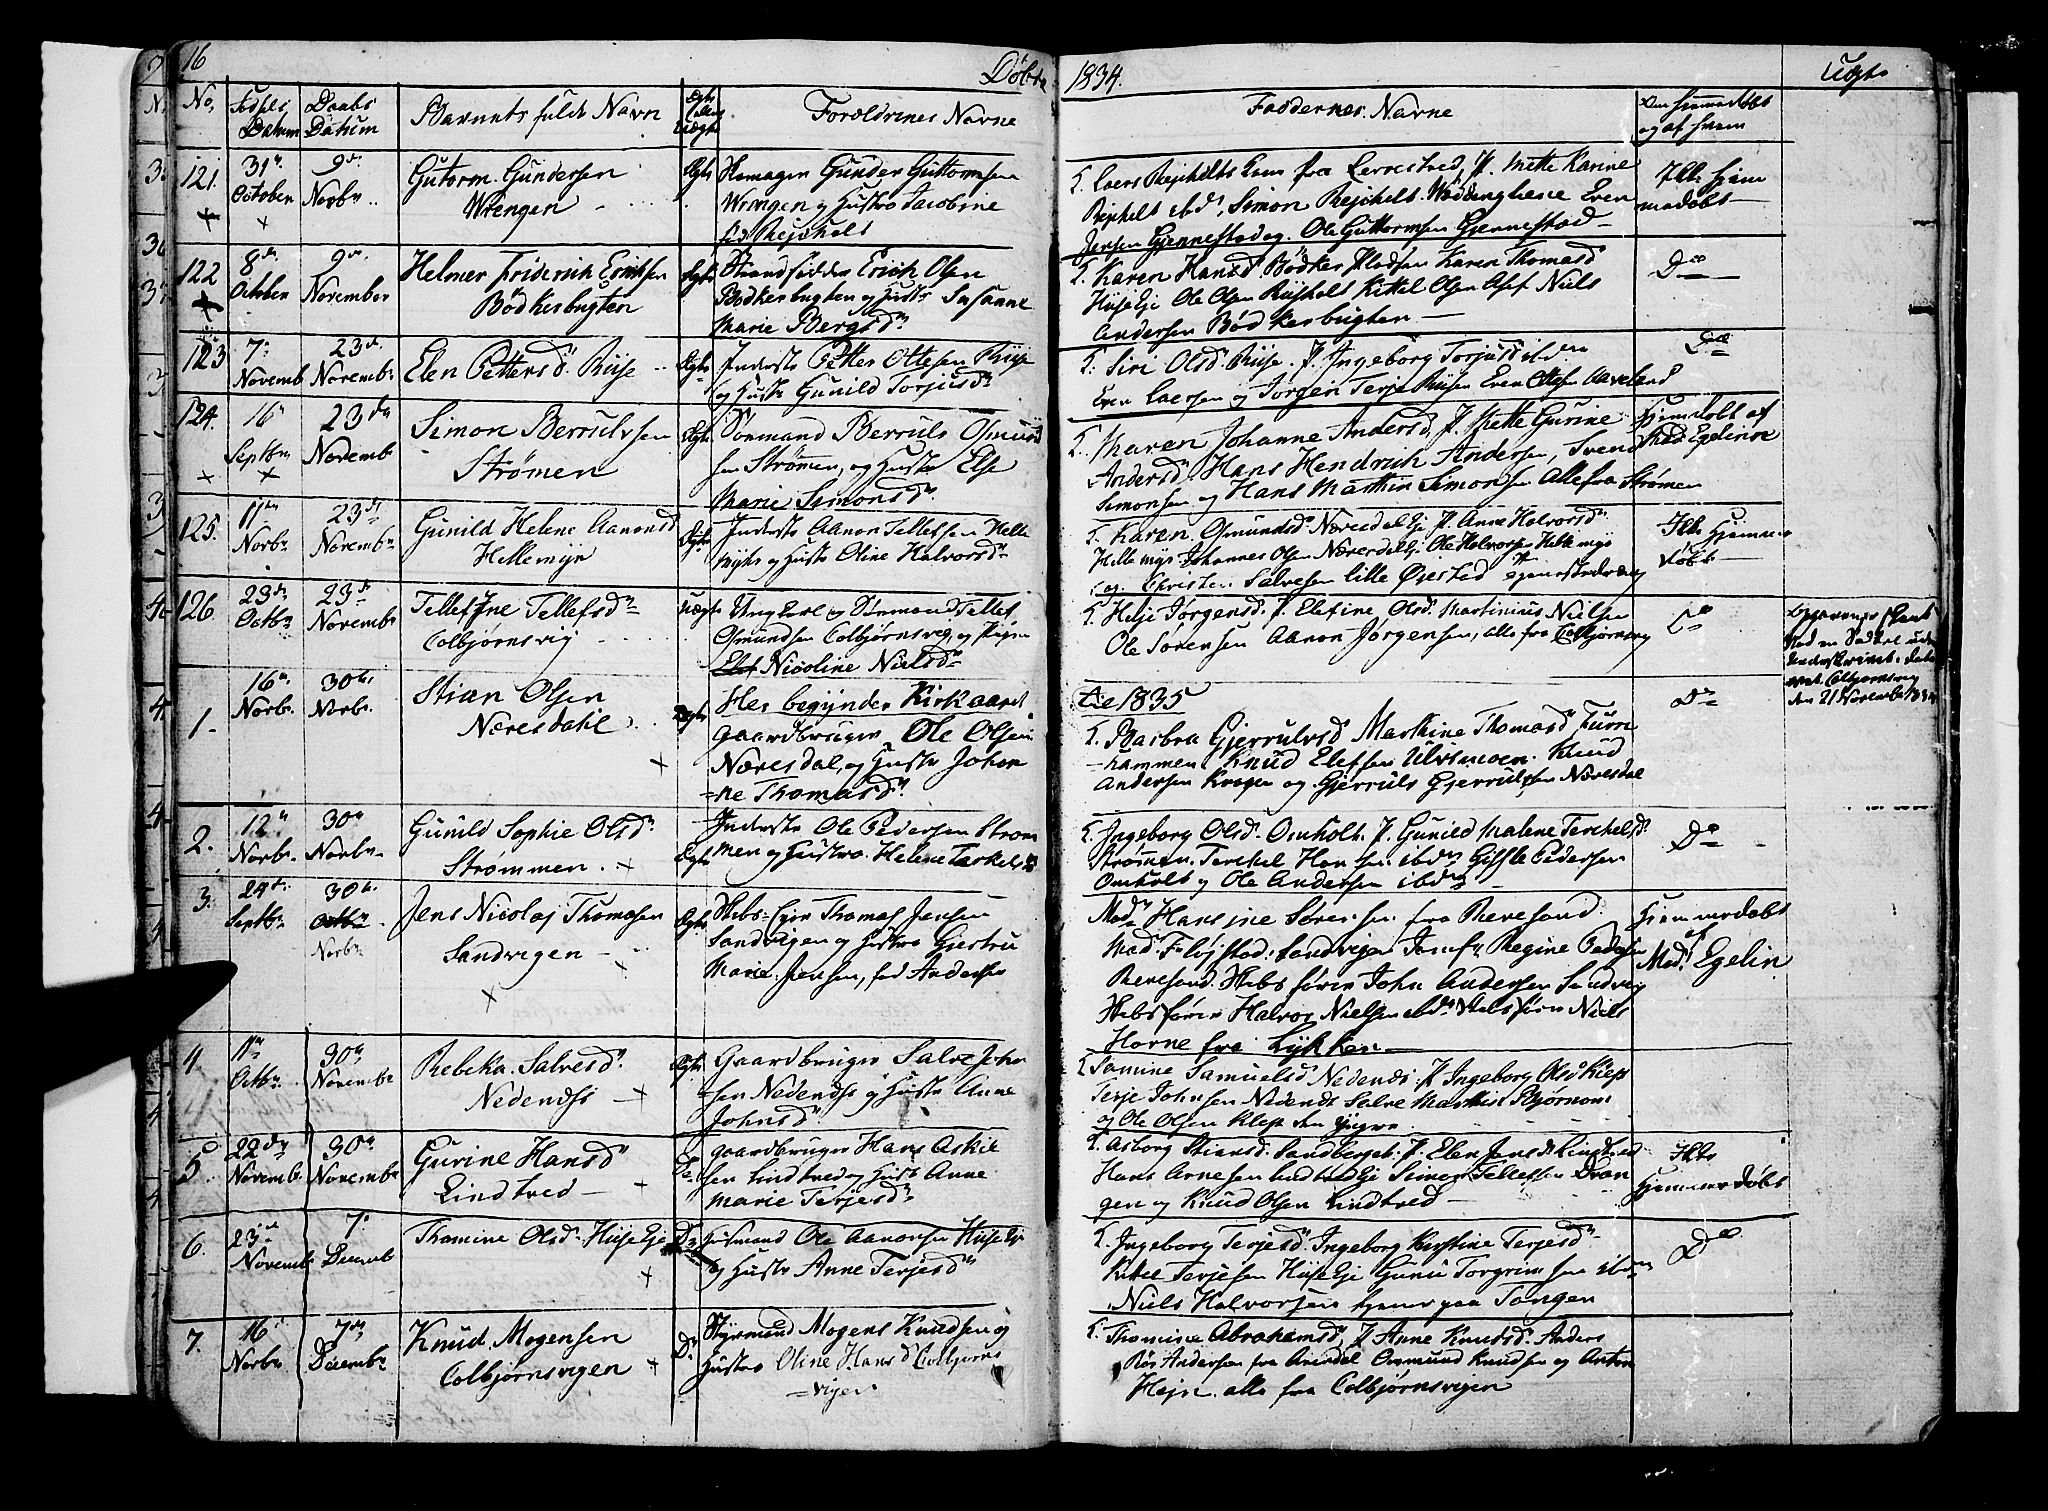 16 Døbte 1834.
No. Fødsels Datum Daabs Datum Barnets fulde Navn Forældrenes Navne Faddernes Navne
og af hvem
121. 31te October 9de Novbr Gutorm Gundersen Wrengen
Gunder Guttormsen
Wrengen og Hustro Jacobine
fra Lerrestved, P. Mette Karine
ibd, Simon
Jensen Gjennestad og Ole Guttormsen Gjennestad
Ikke hjemmedøbt
122 8de October 9de November Helmer Friderich Erichsen Bödkerbugten
Strandsidder Erich Olsen
Bödkerbugten og Hustro Susanne
Marie Bergsd.
Karen Hansd. Bödker Karen Thomasd
Ole Olsen Kittel Olsen Niels
Andersen Bødkerbugten
Do
123 7de Novemb 23de Novembr Elen Pettersd. Riise
Inderste Petter Ottesen Riise
og Hustro Gunild Torjusd.
Siri Olsd. Riise. P. Ingeborg Torjusd ibden
Even Larsen og Jörgen Terje Riisen Even Olsen Aaveland
Do
124. 16de Septbr 23de Novembr Simon Berrulvsen Strømen
Berrulv Osmund
sen Strømmen, og Hustro Else
Marie Simonsd.
Maren Johanne Andersd, P. Mette Gurine
Andersd. Hans Hendrich Andersen, Svend
Simonsen og Hans Marthin Simonsen Alle fra Strømen
Hjemdöbt af Mad. Egelinn
125. 11te Novbr 23de Novembr Gunild Helene Aanonsd Hellemyr
Inderste Aanon Tellefsen Helle
myhr og Hustro Oline Halvorsd.
Karen Osmundsd. Næresdal Eje P. Anne Halvorsd.
Hellemyr Johannes Olsen Næresdal Eje Ole Halvorsen Hellemyr
og Christen Salvesen lille Øvestad
Ikke hjemmedøbt
126. 23de Octbr 23de Novembr Tellefine Tellefsd. Colbjørnsvig
Uægte Ungkarl og Sömand Tellef
Osmundsen Colbjørnsvig, og Pigen
Nicoline Nielsd.
Helje Jørgensd. P. Elefine Olsd. Martinius Nielsen
Ole Sørensen Aanon Jørgensen, alle fra Colbjørnsvig
Do
den 21 Novembr 1834
Her begynder Kirkeaaret 1835
1. 16de Novbr. 30te Novbr. Stian Olsen Næresdahl
Ægte Gaardbruger Ole Olsen
Næresdal, og Hustro Johan
=ne Thomasd.
Barbra Gjerrulvsd. Marthine Thomasd Furre
-hammen Knud Elefsen Ulvsmoen. Knud
Andersen Kragen og Gjerrulv Gjerrulvsen Næresdal
Do
2. 12te Novbr. 30te Novbr Gunild Sophie Olsd. Strømmen
Inderste Ole Pedersen Strøm
men og Hustro Helene Terkelsd
Ingeborg Olsd. Omholt. P. Gunild Malene Terchelsd.
Strømmen. Terchel Hansen ibden Giffle Pedersen
Omholt og Ole Andersen ibden
Do
3. 24de Septbr. 30te Novbr Jens Nicolaj Thomasen Sandvigen
Skibs-fører Thomas Jensen
Sandvigen og Hustro Giertru
Marie Jensen, fød Andersen
Madm Hansine Sørensen fra Revesand.
Mad. Fløjstad Sandvigen Jomfr Regine Pedersen
Revesand. Skibsfører John Andersen Sandvig
Skibsfører Halvor Nielsen ibdn Skibsfører Niels
Horne fra Lykken
Hjemmedøbt af Mad. Egelin
4 11te Octbr. 30te Novembr Rebeka Salvesd. Nedenæs
Gaardbruger Salve John
sen Nedenæs og Hustro Anne
Johnsd.
Samine Samuelsd Nedenæs P. Ingeborg Olsd Klep
Terje Johnsen Nedenæs Salve Marthin
og Ole Olsen Klep
5. 22de Novembr 30te Novembr Gurine Hansd Lindtved
Gaardbruger Hans Aski
sen Lindtved og Hustr Anne
Marie Terjesd.
Asborg Stiansd. Sandberget. P. Elen Jensd Lindtved
Hans Arnesen Lindtved Eje Simen Tellefsen Dran
gen og Knud Olsen Lindtved
Ikke Hjemmedøbt
6. 23de Novemb 7de Decemb Thomine Olsd. Huse Eje
Huusmand Ole Aanonsen Huse Eje
og Hustro Anne Terjesd
Ingeborg Terjesd. Ingeborg Kirstine Terjesd.
Kittel Terjesen Huse Eje Torgrimsen ibden
Niels Halvorsen hjemme paa Tangen
Do
7. 16de Novbr 7de Decembr Knud Mogensen Colbjørnsvigen
Styrmand Mogens Knudsen og
Hustro Oline Hansd Colbjørns
=vigen
Thomine Abrahamsd, P. Anne Knudsd. Anders
Andersen fra Arendal Osmund Knudsen og Anton
Hejn. alle fra Colbjørnsvigen